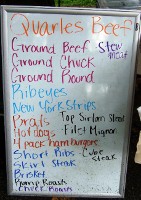 Quarles Beef
Ground Beef Stew meat
Ground Chuck
Ground Round
Ribeyes
New York Strips
Brats Top Sirloin Steak
Hot dogs Filet Mignon
4 pack hamburgers
Short Ribs - Cube Steak
Skirt Steak
Brisket
Rump Roasts
Chuck Roasts